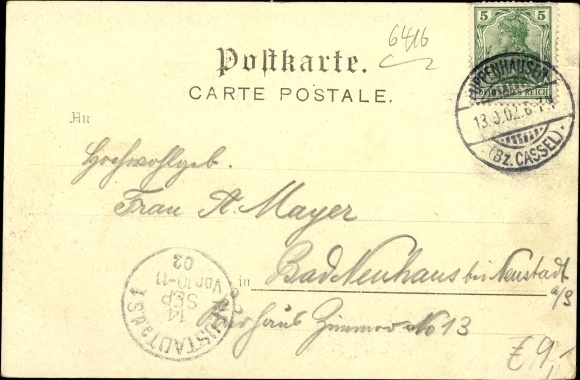 6416
5 5
DEUTSCHES REICH
Postkarte.
CARTE POSTALE.
PAPPENHAUSEN
13.9.02.6-7N
(BZ. CASSEL).
An
Hochwohlgeb.
Frau A. Mayer
in Bad Neuhaus bei Neustadt
a/S
Kurhaus Zimmer No 13
NEUSTADT a.d. S
14
SEP
Vor 10-11
02
€ 9,-